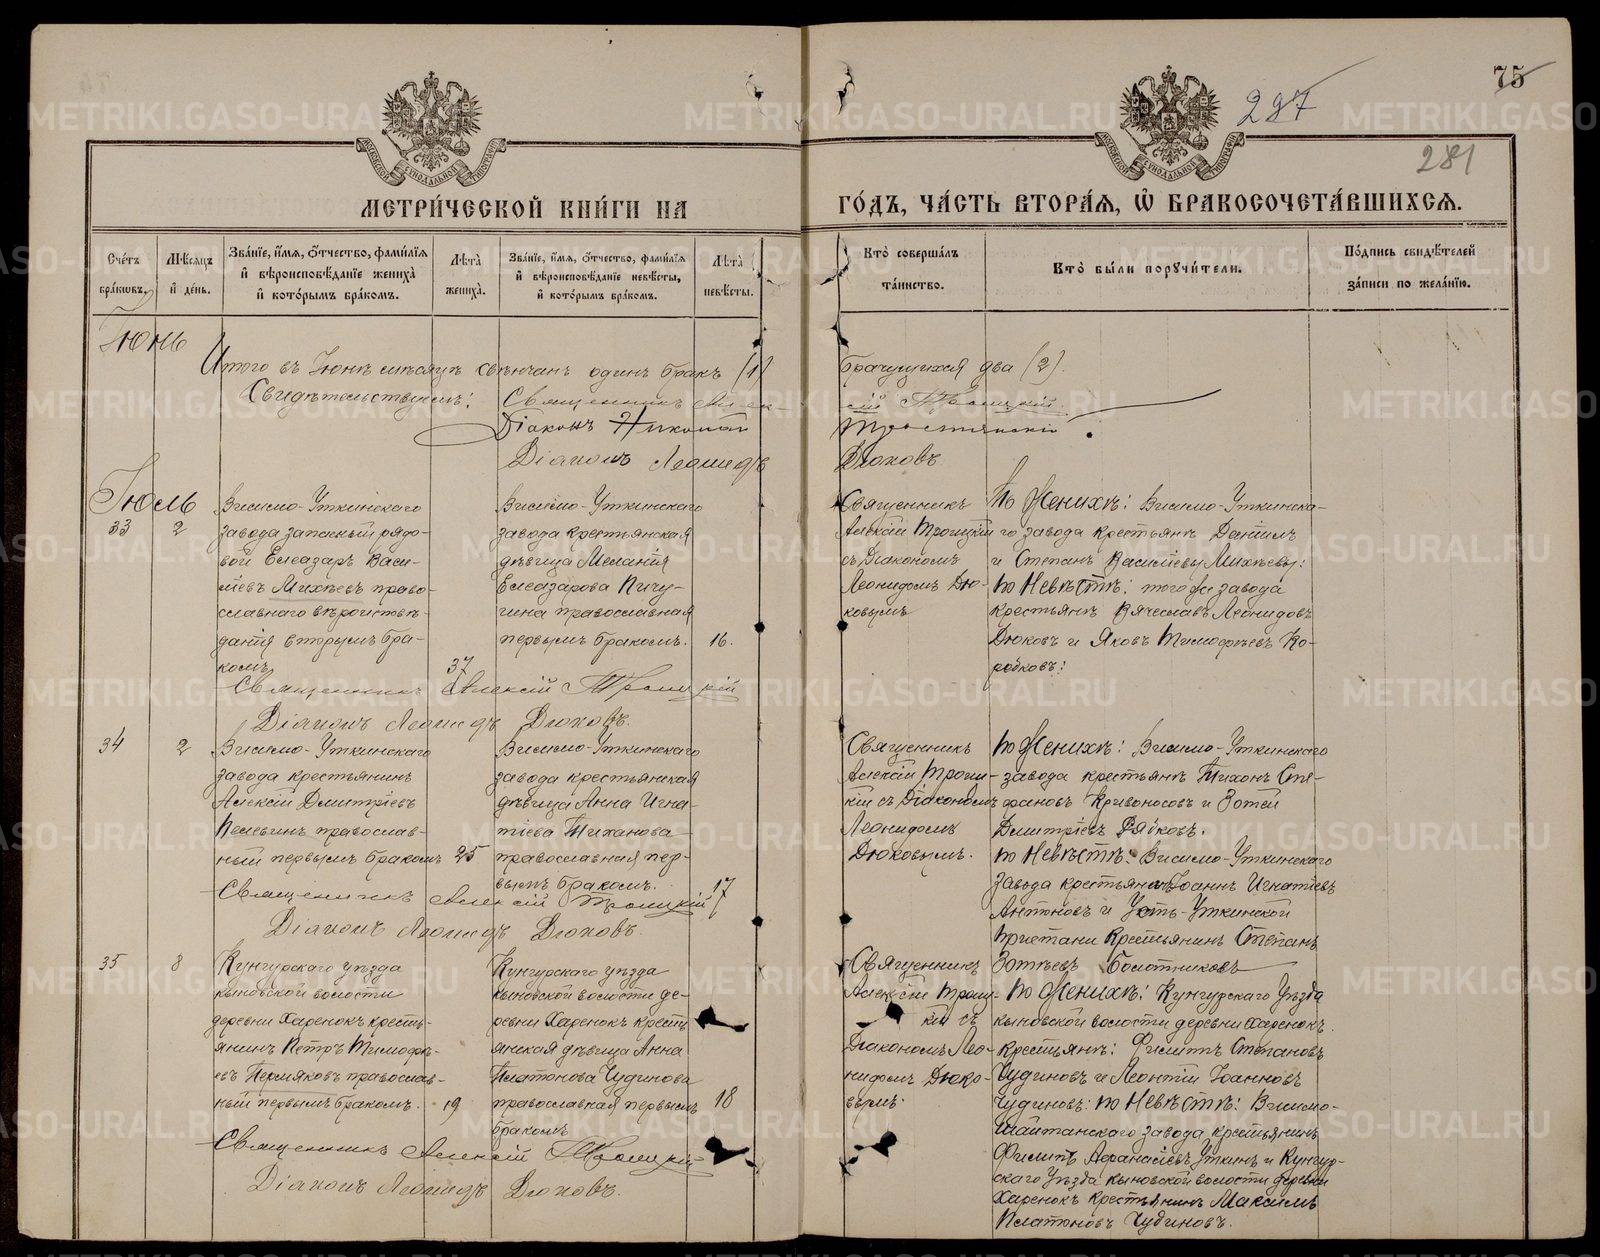 75
287
281
МЕТРИ́ЧЕСКОЙ КНИ́ГИ НА
ГО́ДЪ, ЧА́СТЬ ВТОРА́Я, Ѡ҆ БРАКОСОЧЕТА́ВШИХСЯ.
Сче́тъ бра́ковъ.
Мѣ́сяцъ и҆ де́нь.
Зва́нїе, и҆́мя, ѻ҆́тчество, фами́лїя
и҆ вѣроисповѣ́данїе жениха̀
и҆ кото́рымъ бра́комъ.
Лѣ́та жениха̀.
Зва́нїе, и҆́мя, ѻ҆́тчество, фами́лїя
и҆ вѣроисповѣ́данїе невѣ́сты,
и҆ кото́рымъ бра́комъ.
Лѣ́та невѣ́сты.
Кто̀ соверша́лъ
та́инство.
Кто̀ бы́ли поручи́тели.
По́дпись свидѣ́телей
за́писи по жела́нїю.
Іюнь
Итого въ Іюнѣ мѣсяцѣ свѣнчанъ одинъ бракъ (1)
брачущихся два (2).
Свидѣтельствуемъ: Священникъ Алек-
сій Троицкій
Діаконъ Николай
Діаконъ Леонидъ
Дюковъ
Іюль
33
2
Висимо-Уткинскаго
завода запасный рядо-
вой Елеазаръ Васи-
ліевъ Михѣевъ право-
славнаго вѣроисповѣ-
данія вторымъ бра-
комъ
37
Висимо-Уткинскаго
завода крестьянская
дѣвица Меланія
Елеазарова Пичу-
гина православная
первымъ бракомъ.
16.
Священникъ
Алексій Троицкій
съ Діакономъ
Леонидомъ Дю-
ковымъ
По Женихѣ: Висимо-Уткинска-
го завода крестьянѣ Даніилъ
и Степанъ Василіевы Михѣевы:
по Невѣстѣ: того же завода
крестьянѣ Вячеславъ Леонидовъ
Дюковъ и Яковъ Тимофѣевъ Ко-
робковъ:
Священникъ Алексій Троицкій
Діаконъ Леонидъ Дюковъ.
34
2
Висимо-Уткинскаго
завода крестьянинъ
Алексій Димитріевъ
Пелевинъ православ-
ный первымъ бракомъ
25
Висимо-Уткинскаго
завода крестьянская
дѣвица Анна Игна-
тіева Тиханова
православная пер-
вымъ бракомъ.
17
Священникъ
Алексій Троиц-
кій съ Діакономъ
Леонидомъ
Дюковымъ.
по Женихѣ: Висимо-Уткинскаго
завода крестьянѣ Тихонъ Сте-
фановъ Кривоносовъ и Зотей
Дмитріевъ Рябковъ.
по Невѣстѣ: Висимо-Уткинскаго
завода крестьянинъ Іоаннъ Игнатіевъ
Антоновъ и Усть-Уткинской
пристани крестьянинъ Степанъ
Зотѣевъ Болотниковъ
Священникъ Алексій Троицкій
Діаконъ Леонидъ Дюковъ.
35
8
Кунгурскаго уѣзда
кыновской волости
деревни Харенокъ кресть-
янинъ Петръ Тимофѣ-
евъ Пермяковъ православ-
ный первымъ бракомъ.
19
Кунгурскаго уѣзда
кыновской волости де-
ревни Харенокъ кресть
янская дѣвица Анна
Платонова Чудинова
православная первымъ
бракомъ
18
Священникъ
Алексій Троиц-
кій съ
Діакономъ Лео-
нидомъ Дюко-
вымъ.
по Женихѣ: Кунгурскаго Уѣзда
кыновской волости деревни Харенокъ
крестьянѣ: Филиппъ Степановъ
Чудиновъ и Леонтій Іоанновъ
Чудиновъ: по Невѣстѣ: Висимо-
Шайтанскаго завода крестьянинъ
Филиппъ Афанасіевъ Уткинъ и Кунгур-
скаго Уѣзда кыновской волости деревни
Харенокъ крестьянинъ Максимъ
Платоновъ Чудиновъ.
Священникъ Алексій Троицкій
Діаконъ Леонидъ Дюковъ.
METRIKI.GASO-URAL.RU